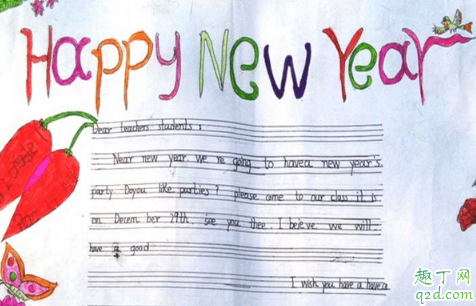 Happy New Year
Dear teachers students:
Near new year we re going to havea new year's
party Doyou like parties? please come to our class it is
on Decem ber 29th. see you thee. I beieve we will
have a good
I wish you have a havea
趣丁网
q2d.com